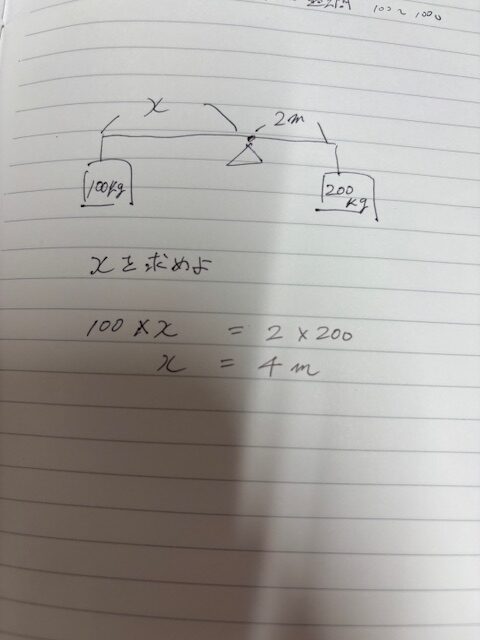 100 ~ 1000
x
2m
100kg
200
kg
xを求めよ
100 × x = 2 × 200
x = 4 m